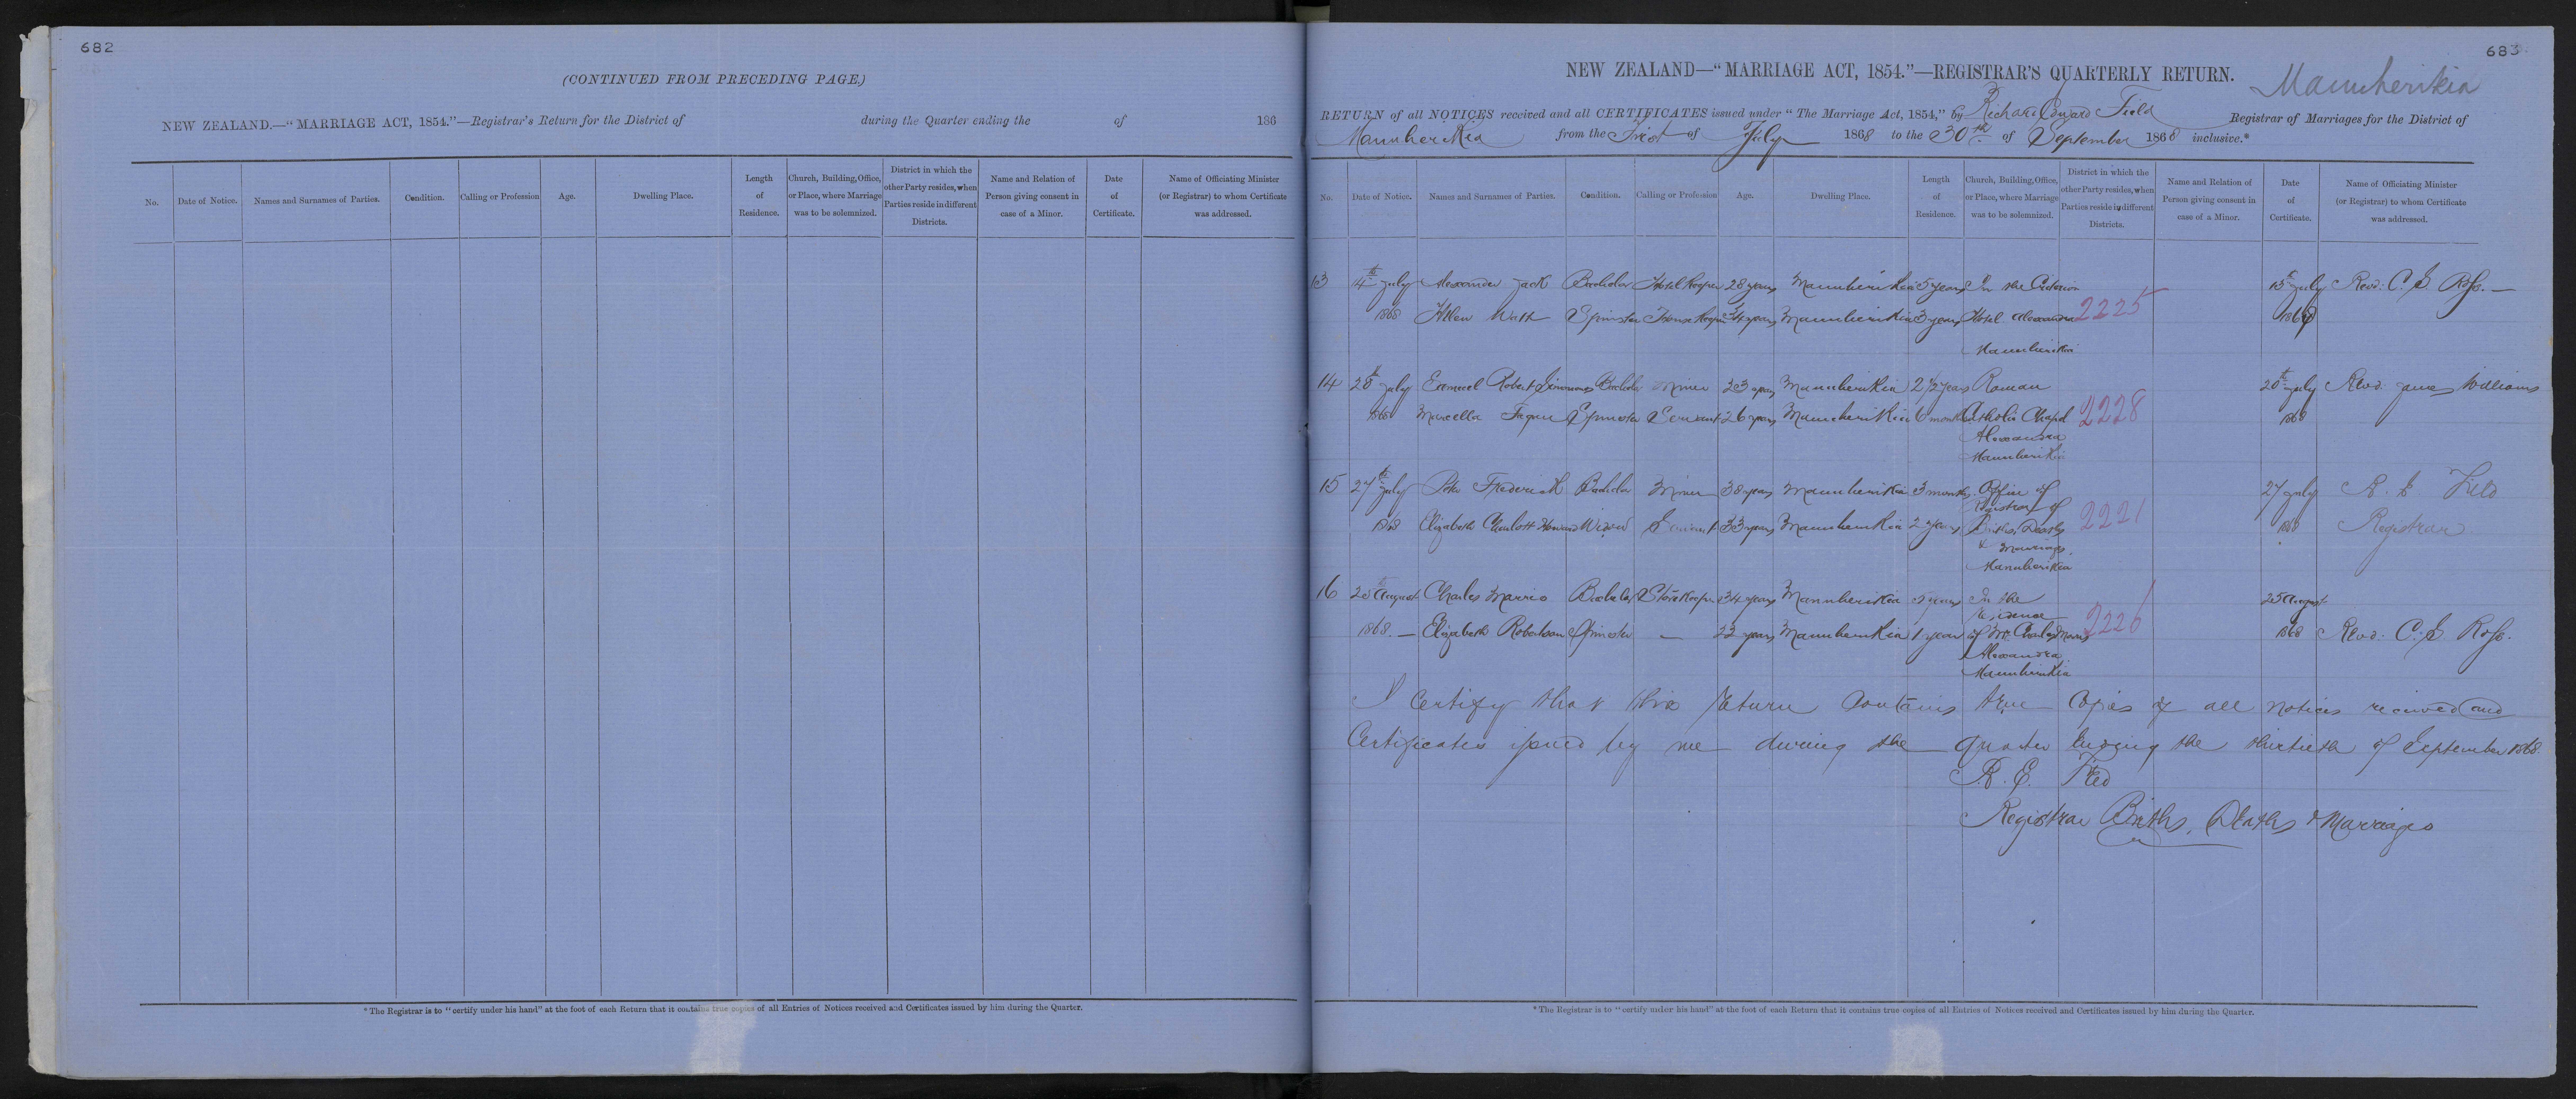 682
(CONTINUED FROM PRECEDING PAGE.)
NEW ZEALAND.—"MARRIAGE ACT, 1854."—Registrar's Return for the District of during the Quarter ending the of 186
No. Date of Notice. Names and Surnames of Parties. Condition. Calling or Profession Age. Dwelling Place. Length of Residence. Church, Building, Office, or Place, where Marriage was to be solemnized. District in which the other Party resides, when Parties reside in different Districts. Name and Relation of Person giving consent in case of a Minor. Date of Certificate. Name of Officiating Minister (or Registrar) to whom Certificate was addressed.
*The Registrar is to "certify under his hand" at the foot of each Return that it contains true copies of all Entries of Notices received and Certificates issued by him during the Quarter.
683
NEW ZEALAND—"MARRIAGE ACT, 1854."—REGISTRAR'S QUARTERLY RETURN.
Manuherikia
RETURN of all NOTICES received and all CERTIFICATES issued under "The Marriage Act, 1854," by Richard Edward Field Registrar of Marriages for the District of
Manuherikia from the First of July 1868 to the 30th of September 1868 inclusive.*
No. Date of Notice. Names and Surnames of Parties. Condition. Calling or Profession Age. Dwelling Place. Length of Residence. Church, Building, Office, or Place, where Marriage was to be solemnized. District in which the other Party resides, when Parties reside in different Districts. Name and Relation of Person giving consent in case of a Minor. Date of Certificate. Name of Officiating Minister (or Registrar) to whom Certificate was addressed.
13 July Alexander Jack Bachelor Hotel Keeper 28 years Manuherikia 5 years In the Criterion 15th July Revd. C. S. Ross.—
1868 Hellen Watt Spinster House Keeper 34 years Manuherikia 3 years Hotel Alexandra 2225 1868
Manuherikia
14 28th July Emanuel Robert Simmons Bachelor Miner 23 years Manuherikia 2 1/2 years Roman July Revd. James Williams
1868 Marcella Spinster Servant 26 years Manuherikia 6 months Catholic Chapel 2228 1868
Alexandra
Manuherikia
15 27th July Peter Frederick Bachelor Miner 38 years Manuherikia 3 months Office of 27 July R. E. Field
Registrar of
1868 Elizabeth Charlott Howard Widow Servant 33 years Manuherikia 2 years Births, Deaths 2221 1868 Registrar
& Marriages
Manuherikia
16 25th August Charles Marris Bachelor Store Keeper 34 years Manuherikia 5 years In the 25 August
Residence
1868.— Elizabeth Robertson Spinster — 22 years Manuherikia 1 year of Mr. Charles Marris 2226 1868 Revd. C. S. Ross.
Alexandra
Manuherikia
I certify that this return contains true copies of all notices received and
Certificates issued by me during the quarter ending the thirtieth of September 1868.
R. E. Field
Registrar Births, Deaths & Marriages
*The Registrar is to "certify under his hand" at the foot of each Return that it contains true copies of all Entries of Notices received and Certificates issued by him during the Quarter.